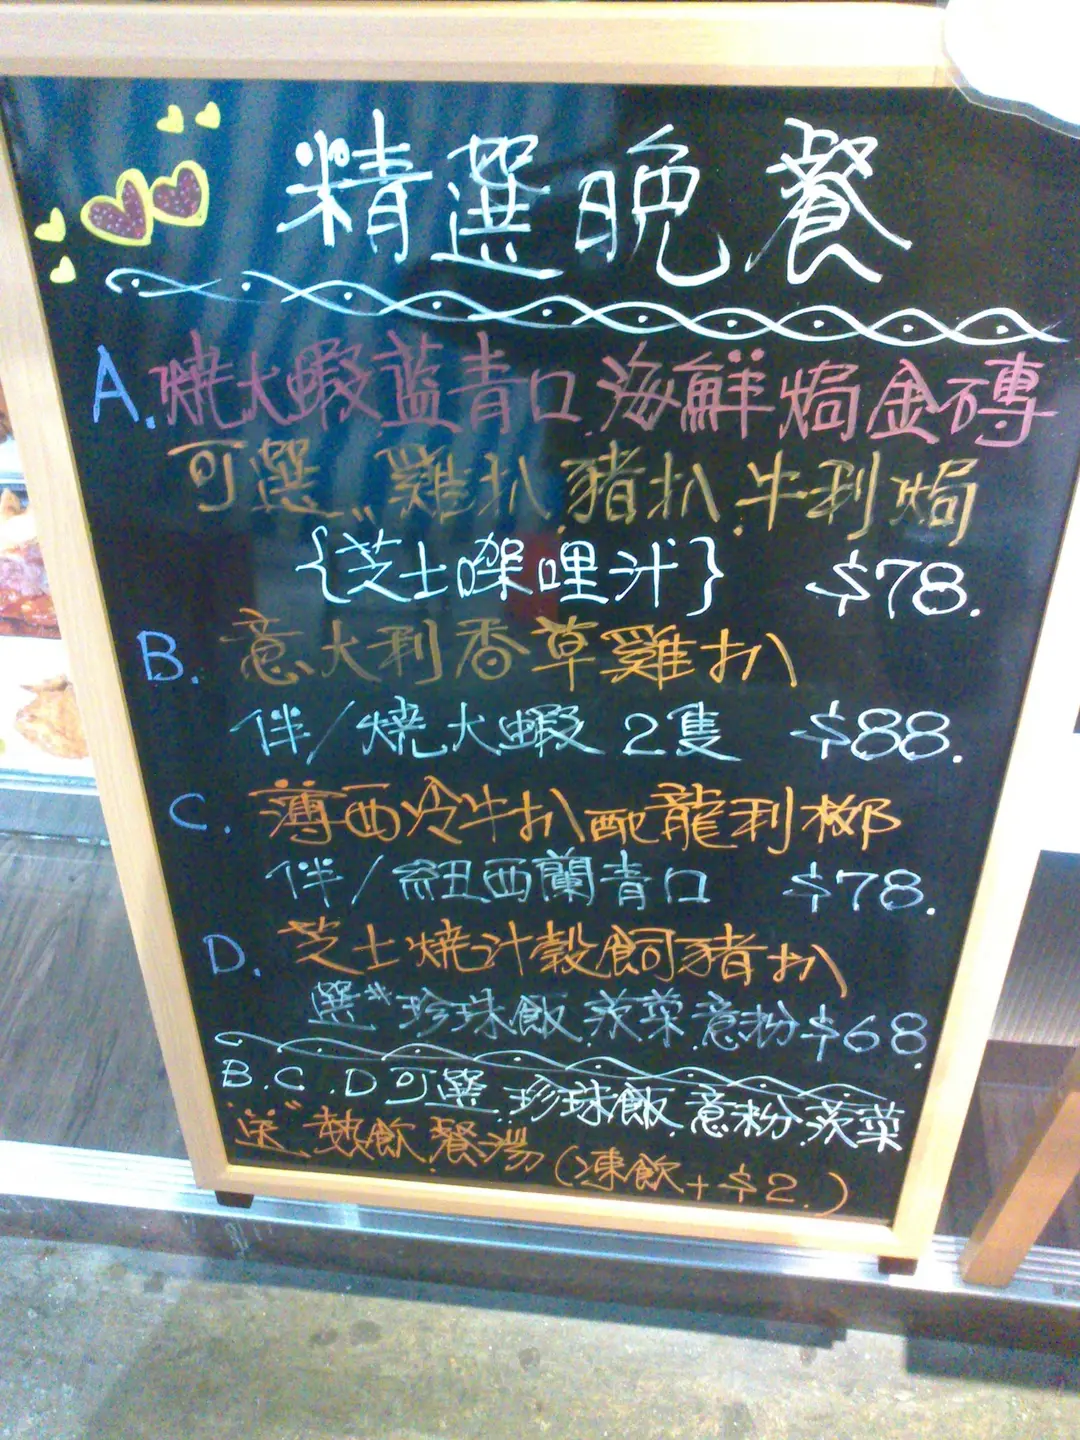 精選晚餐
A.燒大蝦蓝青口海鮮焗金磚
可選"雞扒.豬扒.牛利焗
{芝士㗎哩汁} $78.
B. 意大利香草雞扒
伴/燒大蝦2隻 $88.
C. 薄西冷牛扒配龍利柳
伴/紐西蘭青口 $78.
D. 芝士燒汁穀飼豬扒
選*珍珠飯.茨菜.意粉$68.
B.C.D可選.珍珠飯.意粉.茨菜
"送"熱飲.餐湯(凍飲+$2.)